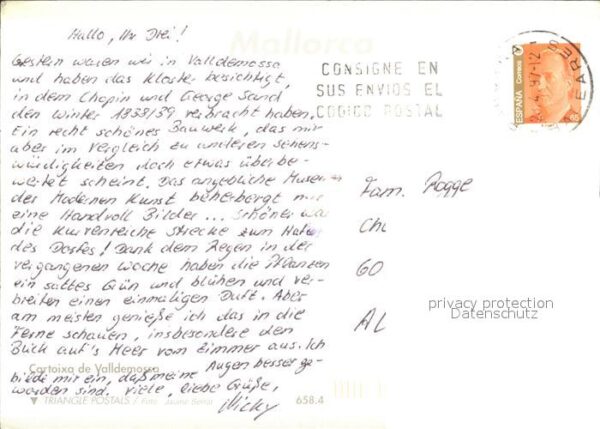 Hallo, Ihr Drei!
Mallorca
Gestern waren wir in Valldemossa
und haben das Kloster besichtigt,
in dem Chopin und George Sand
den Winter 1838/39 verbracht haben.
Ein recht schönes Bauwerk, das mir
aber im Vergleich zu anderen Sehens-
würdigkeiten doch etwas überbe-
wertet scheint. Das angebliche Museum
des Modernen Kunst beherbergt nur
eine Handvoll Bilder... Schöner war
die kurvenreiche Strecke zum Hafen
des Dorfes! Dank dem Regen in der
vergangenen Woche haben die Pflanzen
ein sattes Grün und blühen und ver-
breiten einen einmaligen Duft. Aber
am meisten genieße ich das in die
Ferne schauen, insbesondere den
Blick auf's Meer vom Zimmer aus. Ich
bilde mir ein, daß meine Augen besser ge-
worden sind. Viele, liebe Grüße,
Micky
Cartoixa de Valldemossa
▼ TRIANGLE POSTALS / Foto: Jaume
658.4
CONSIGNE EN
SUS ENVIOS EL
CODIGO POSTAL
ESPAÑA Correos
4.97-12
EARES
Fam. Rogge
Ch
60
AL
privacy protection
Datenschutz